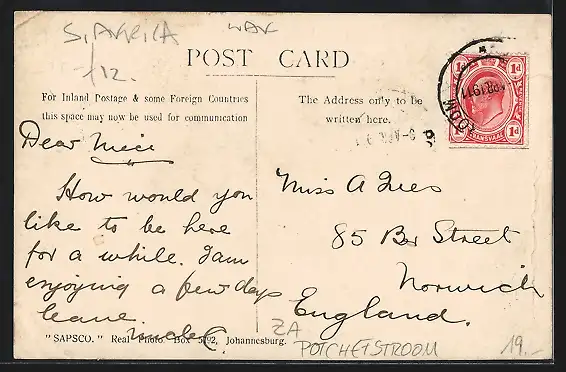 S. AFRICA WAR
-/12.
POST CARD
For Inland Postage & some Foreign Countries
this space may now be used for communication
The Address only to be
written here.
1d 1d
1d 1d
TRANSVAAL
Dear
How would you
like to be here
for a while. I am
enjoying a few days
leave.
Miss A
85 Ber Street
Norwich
England.
"SAPSCO." Real Photo. Box 5792, Johannesburg.
ZA
POTCHEFSTROOM
19.-